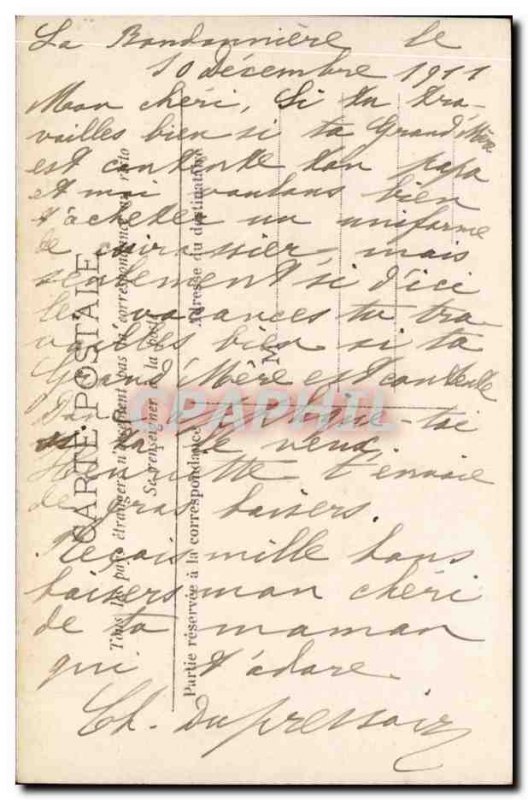 La Bondonnière le
10 décembre 1911
Mon chéri, Si tu tra-
vailles bien si ta Grand'Mère
est contente ton papa
et moi voulons bien
t'acheter un uniforme
de cuirassier, mais
seulement si d'ici
les vacances tu tra-
vailles bien si ta
Grand'Mère est contente
Donc applique-toi
si tu le veux.
Henriette t'envoie
de gros baisers.
Reçois mille bons
baisers mon chéri
de ta maman
qui t'adore.
Ch. Dupressoir
CARTE POSTALE
Tous les pays étrangers n'acceptent pas la correspondance au recto
Se renseigner à la poste
Partie réservée à la correspondance
Adresse du destinataire
M
CPAPHIL